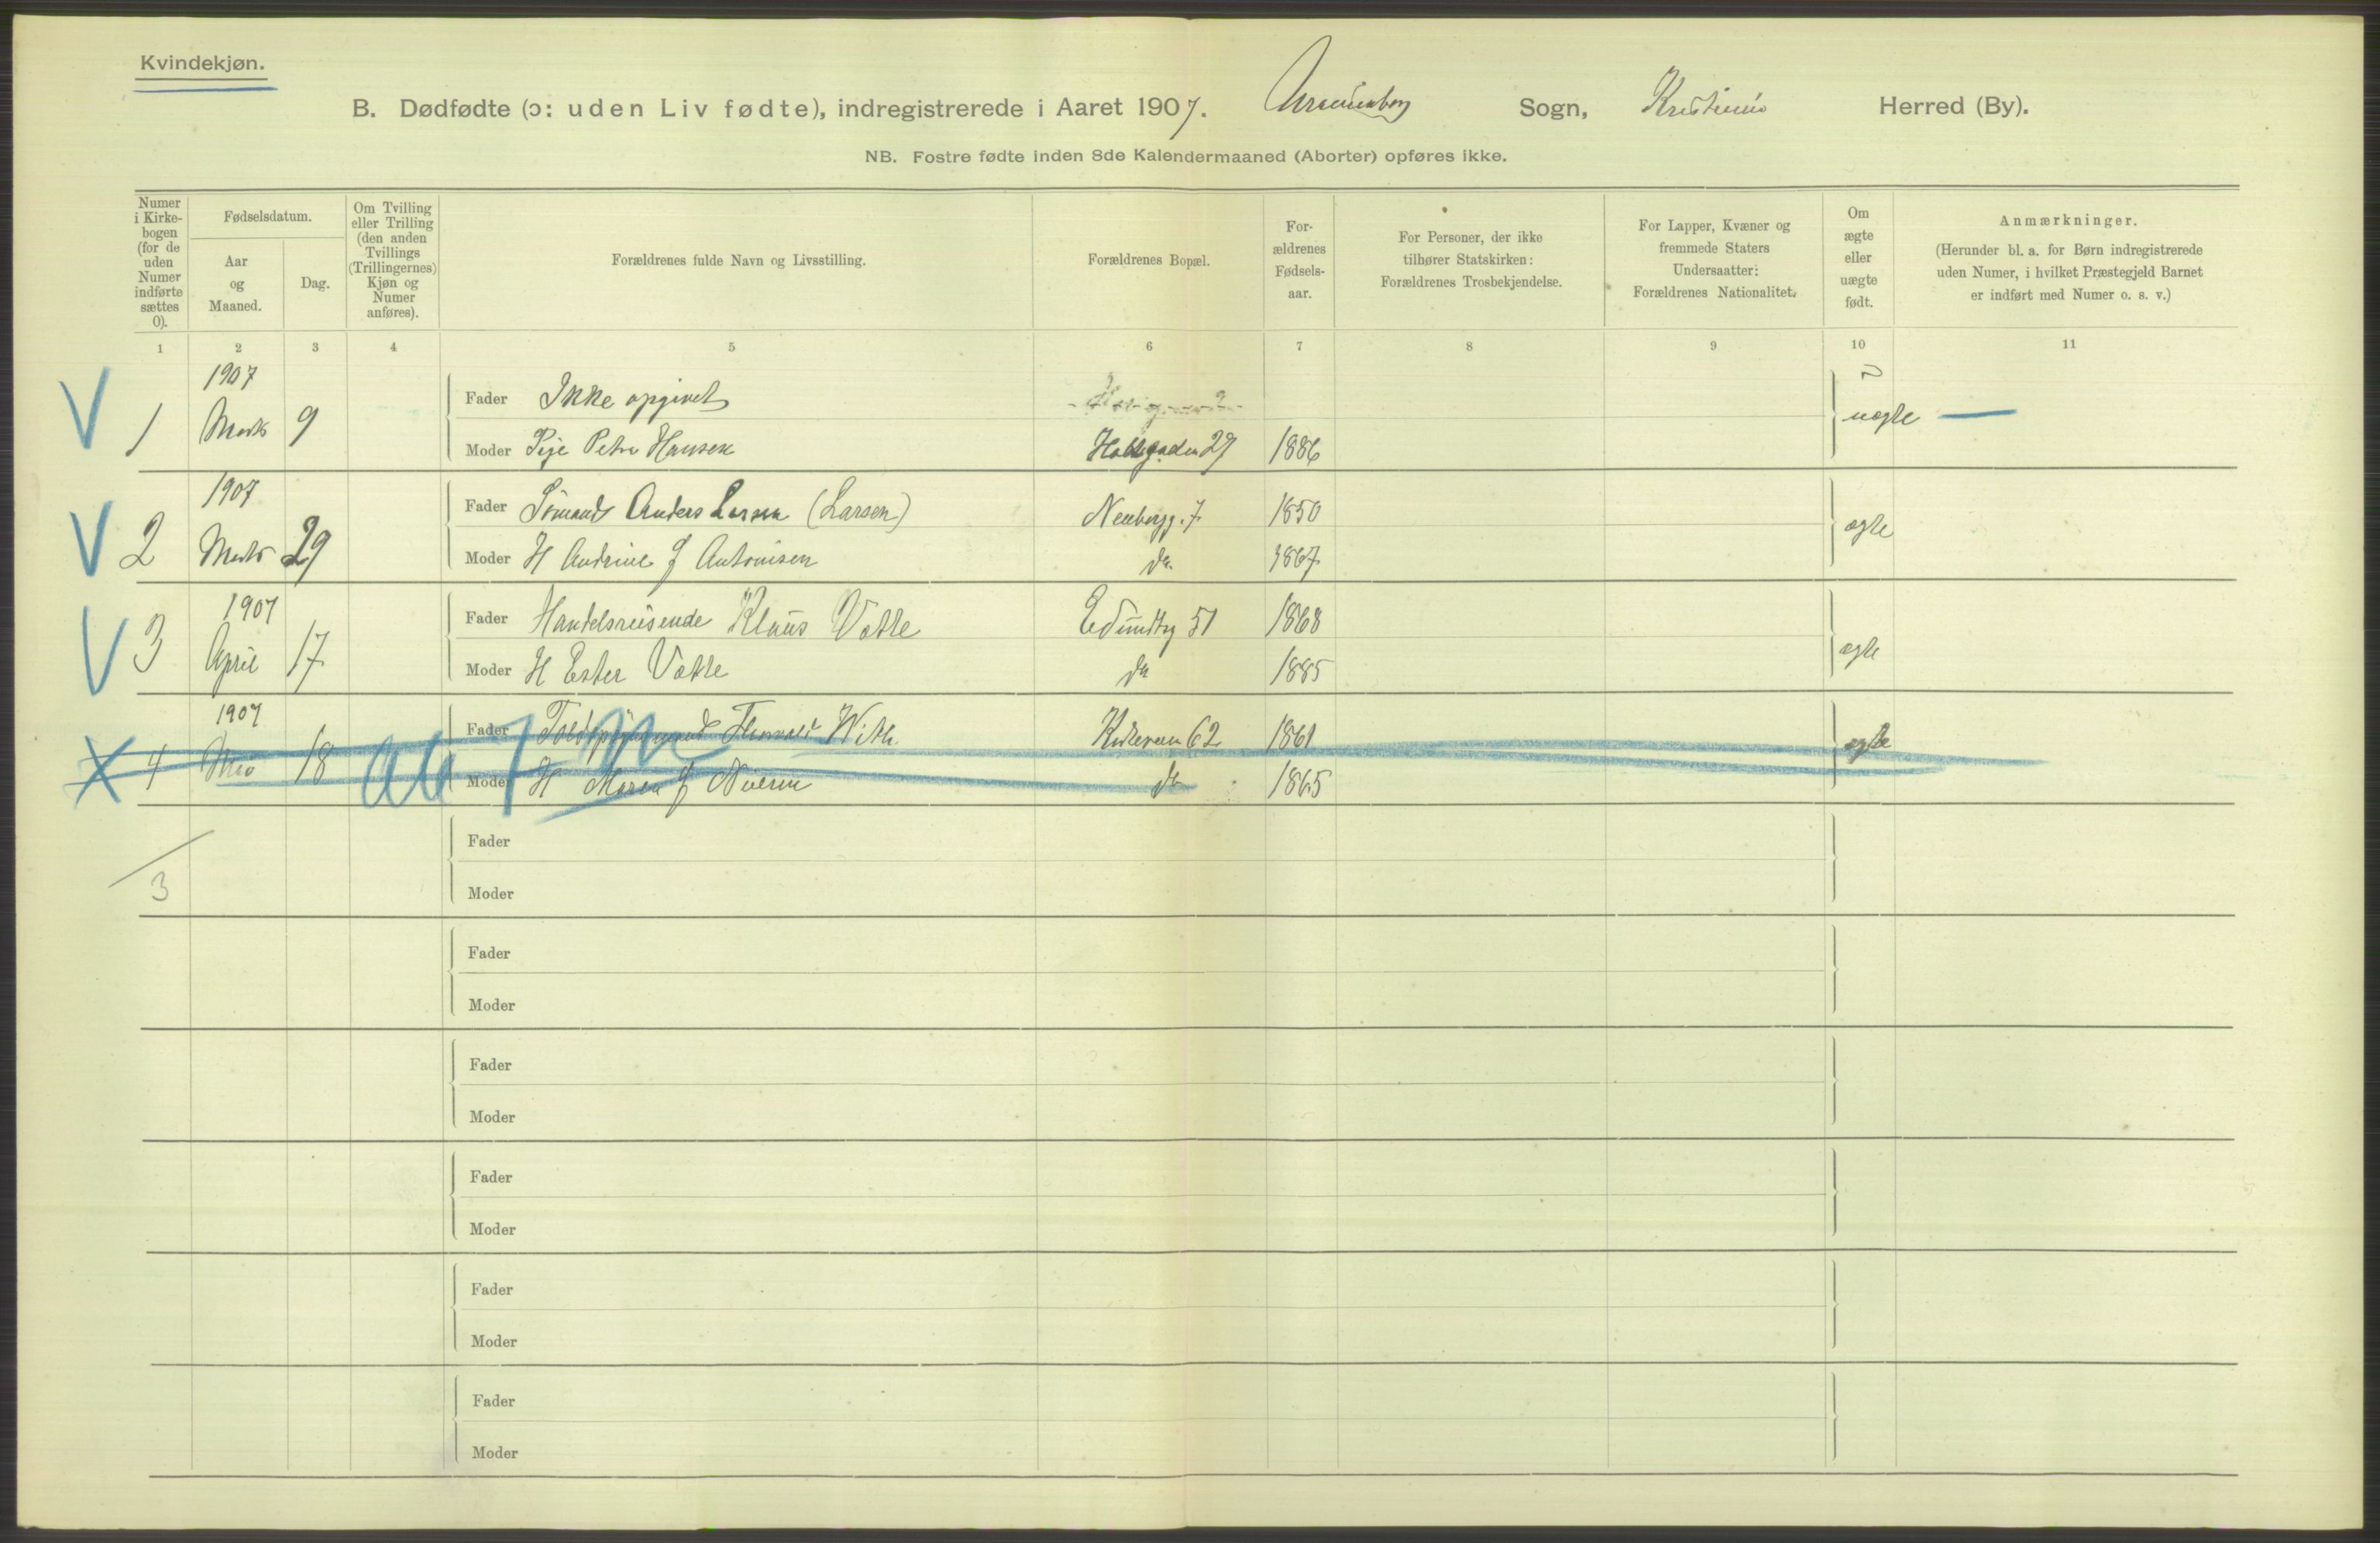 Kvindekjøn.
B. Dødfødte (ɔ: uden Liv fødte), indregistrerede i Aaret 1907. Sogn, Kristiania Herred (By).
NB. Fostre fødte inden 8de Kalendermaaned (Aborter) opføres ikke.
Numer i Kirke-bogen (for de uden Numer indførte sættes 0).
Fødselsdatum.
Aar og Maaned.
Dag.
Om Tvilling eller Trilling (den anden Tvillings (Trillingernes) Kjøn og Numer anføres).
Forældrenes fulde Navn og Livsstilling.
Forældrenes Bopæl.
For-ældrenes Fødsels-aar.
For Personer, der ikke tilhører Statskirken: Forældrenes Trosbekjendelse.
For Lapper, Kvæner og fremmede Staters Undersaatter: Forældrenes Nationalitet.
Om ægte eller uægte født.
Anmærkninger.
(Herunder bl. a. for Børn indregistrerede uden Numer, i hvilket Præstegjeld Barnet er indført med Numer o. s. v.)
1 2 3 4 5 6 7 8 9 10 11
1907
Fader Ikke opgivet
V 1 Marts 9 uægte —
Moder Petra Hansen 29 1886
1907
Fader Sömand Anders Larsen (Larsen) 7 1850
V 2 Marts 29 ægte
Moder H Andrine f Antonisen do 1867
1907
Fader Handelsreisende Klaus Vatle 51 1868
V 3 April 17 ægte
Moder H Ester Vatle do 1885
1907
Fader With Kirkeveien 62 1861
X 4 Mai 18 ægte
Moder H Maren f do 1865
3
Fader
Moder
Fader
Moder
Fader
Moder
Fader
Moder
Fader
Moder
Fader
Moder